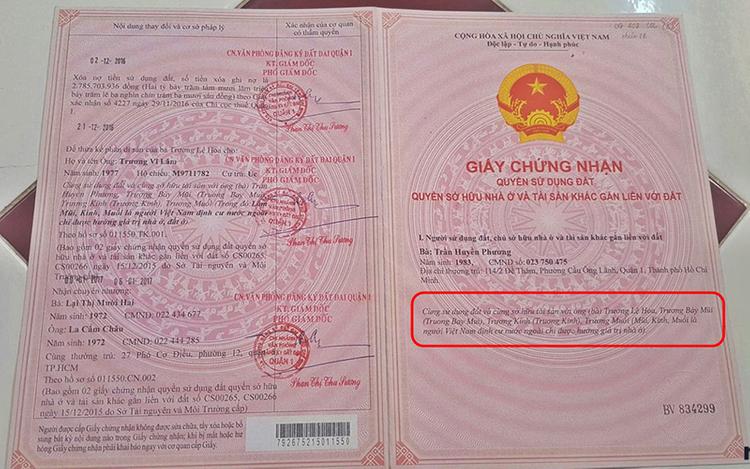 Nội dung thay đổi và cơ sở pháp lý
Xác nhận của cơ quan
có thẩm quyền
02 -12- 2016
Xóa nợ tiền sử dụng đất, số tiền xóa ghi nợ là
2.785.703.936 đồng (Hai tỷ bảy trăm tám mươi lăm triệu
bảy trăm lẻ ba nghìn chín trăm ba mươi sáu đồng) theo Giấy
xác nhận số 4227 ngày 29/11/2016 của Chi cục thuế Quận
1.
CN.VĂN PHÒNG ĐĂNG KÝ ĐẤT ĐAI QUẬN 1
KT. GIÁM ĐỐC
PHÓ GIÁM ĐỐC
QUẬN 1
Phan Thị Thu Sương
21 -12- 2016
Để thừa kế phần di sản của bà Trương Lệ Hòa cho:
Họ và tên Ông: Trương Vĩ Lâm
Năm sinh: 1977 Hộ chiếu: M9711782 Cư trú: Úc
Cùng sử dụng đất và cùng sở hữu tài sản với ông (bà) Trần
Huyền Phương, Trương Bảy Mũi (Trương Bay Mui),
Trương Kinh (Truong Kinh), Trương Muối; Trong đó: Lâm,
Mũi, Kinh, Muối là người Việt Nam định cư nước ngoài
chỉ được hưởng giá trị nhà ở, đất ở)
Theo hồ sơ số 011550.TK.001.
(Bao gồm 02 giấy chứng nhận quyền sử dụng đất quyền sở
hữu nhà ở và tài sản gắn liền với đất số CS00265,
CS00266 ngày 15/12/2015 do Sở Tài nguyên và Môi
Trường cấp)
CN.VĂN PHÒNG ĐĂNG KÝ ĐẤT ĐAI QUẬN 1
KT. GIÁM ĐỐC
PHÓ GIÁM ĐỐC
QUẬN 1
Phan Thị Thu Sương
Nhận chuyển nhượng:
Bà: Lại Thị Mười Hai
Năm sinh: 1972 CMND số: 022 434 677
Ông: La Cẩm Châu
Năm sinh: 1972 CMND số: 022 441 285
Cùng thường trú: 27 Phó Cơ Điều, phường 12, quận
TP.HCM
Theo hồ sơ số 011550.CN.002
(Bao gồm 02 giấy chứng nhận quyền sử dụng đất quyền sở hữu
nhà ở và tài sản gắn liền với đất số CS00265, CS00266
ngày 15/12/2015 do Sở Tài nguyên và Môi Trường cấp)
CN.VĂN PHÒNG ĐĂNG KÝ ĐẤT ĐAI QUẬN 1
KT. GIÁM ĐỐC
PHÓ GIÁM ĐỐC
QUẬN 1
Phan Thị Thu Sương
Người được cấp Giấy chứng nhận không được sửa chữa, tẩy xóa hoặc bổ
sung bất kỳ nội dung nào trong Giấy chứng nhận; khi bị mất hoặc hư
hỏng Giấy chứng nhận phải khai báo ngay với cơ quan cấp Giấy.
792675215011550
CỘNG HÒA XÃ HỘI CHỦ NGHĨA VIỆT NAM
Độc lập - Tự do - Hạnh phúc
VIỆT NAM
GIẤY CHỨNG NHẬN
QUYỀN SỬ DỤNG ĐẤT
QUYỀN SỞ HỮU NHÀ Ở VÀ TÀI SẢN KHÁC GẮN LIỀN VỚI ĐẤT
I. Người sử dụng đất, chủ sở hữu nhà ở và tài sản khác gắn liền với đất
Bà: Trần Huyền Phương
Năm sinh: 1983, CMND số: 023 750 475
Địa chỉ thường trú: 114/2 Đề Thám, Phường Cầu Ông Lãnh, Quận 1, Thành phố Hồ Chí
Minh.
Cùng sử dụng đất và cùng sở hữu tài sản với ông (bà) Trương Lệ Hòa, Trương Bảy Mũi
(Truong Bay Mui), Trương Kinh (Truong Kinh), Trương Muối (Mũi, Kinh, Muối là
người Việt Nam định cư nước ngoài chỉ được hưởng giá trị nhà ở).
BV 834299